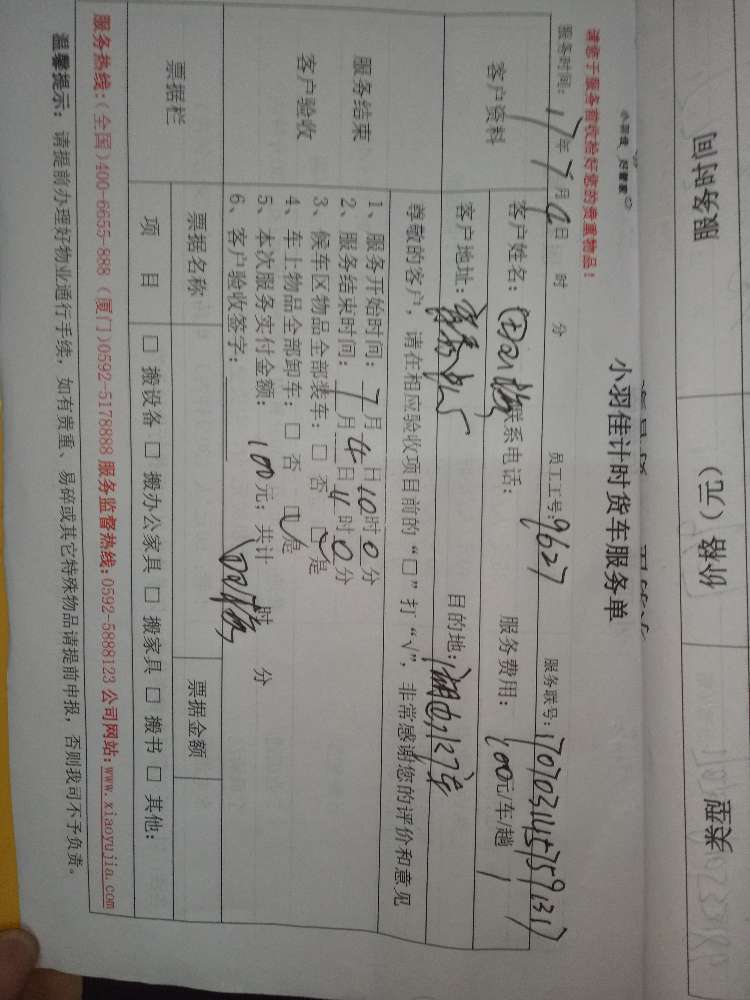 服务时间 价格（元） 类型
小羽佳计时货车服务单
请意于服务前收检好您的贵重物品！
服务时间：17年7月9日 时 分 员工工号：9627 服务联号：
客户资料
客户姓名： 联系电话： 服务费用：100元/车/趟
客户地址： 目的地：
尊敬的客户，请在相应验收项目前的“□”打“√”，非常感谢您的评价和意见
服务结束
客户验收
1、服务开始时间：7月4日10时0分
2、服务结束时间：7月 日11时0分
3、候车区物品全部装车：□ 否 ☑是
4、车上物品全部卸车：□ 否 ☑是
5、本次服务实付金额：100元；共计 时 分
6、客户验收签字：
票据栏
票据名称 票据金额
项 目 □ 搬设备 □ 搬办公家具 □ 搬家具 □ 搬书 □ 其他：
服务热线：（全国）400-6655-888 （厦门）0592-5178888 服务监督热线：0592-5888123 公司网站：www.xiaoyujia.com
温馨提示：请提前办理好物业通行手续，如有贵重、易碎或其它特殊物品请提前申报，否则我司不予负责。